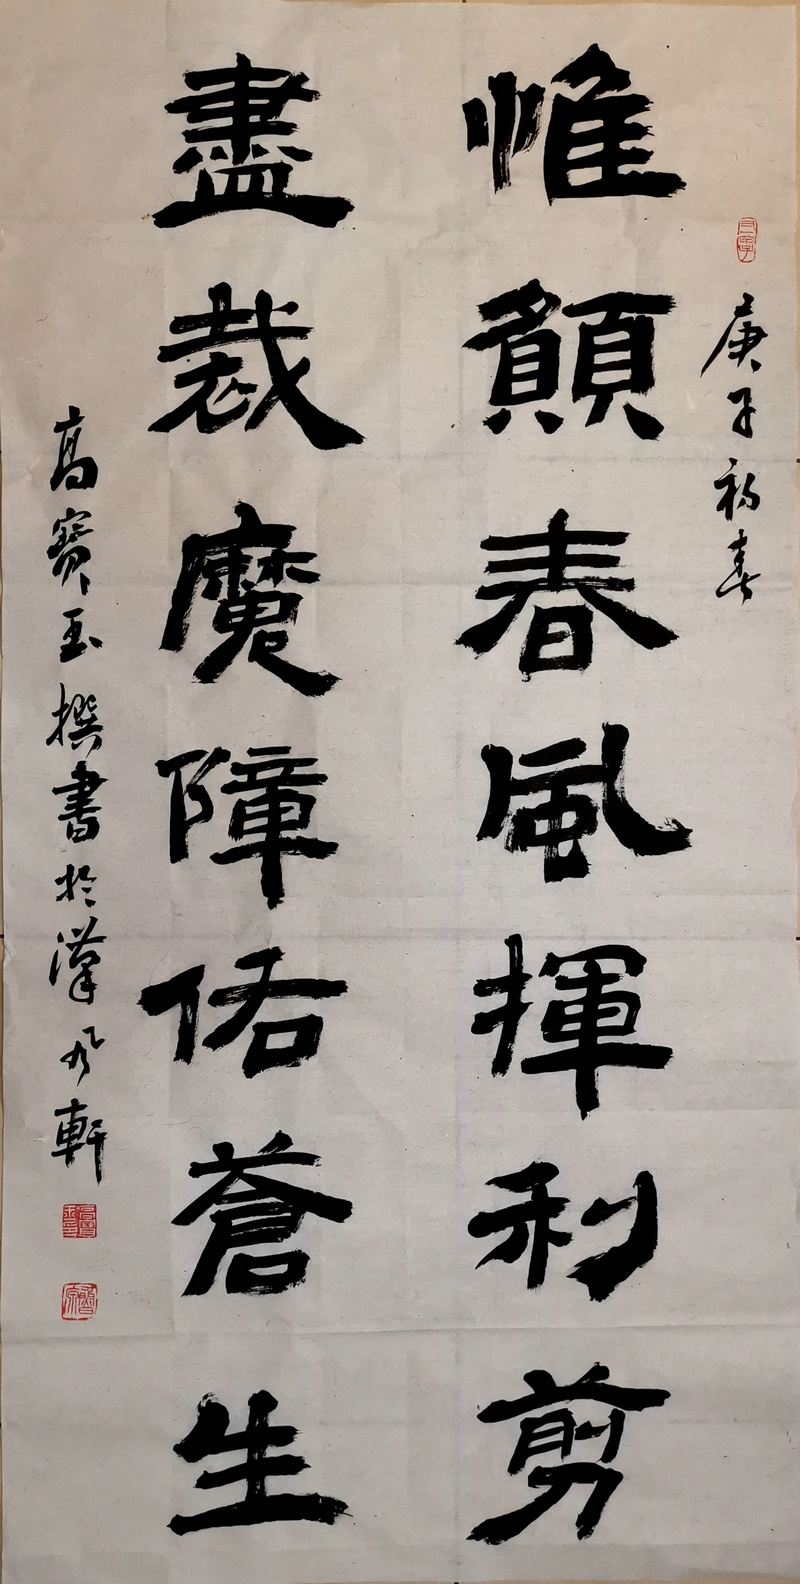 庚子初春
惟願春風揮利剪
盡裁魔障佑蒼生
高寶玉撰書於漢風軒